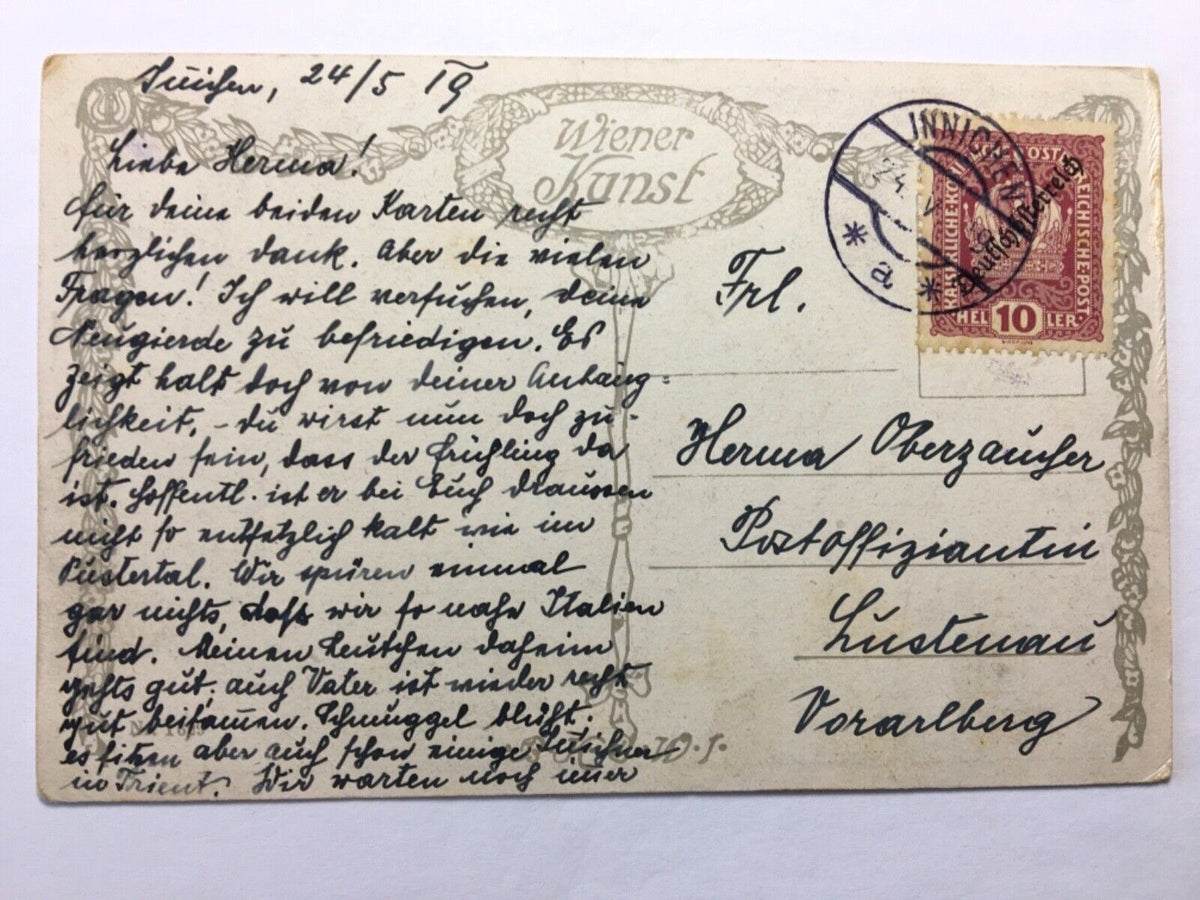 Innichen, 24/5 19
Wiener
Kunst
Liebe Herma!
für deine beiden Karten recht
herzlichen dank. Aber die vielen
Fragen! Ich will versuchen, deine
Neugierde zu befriedigen. Es
zeigt halt doch von deiner Anhäng-
lichkeit. - du wirst nun doch zu-
frieden sein, dass der Frühling da
ist. Hoffentl. ist er bei Euch draussen
nicht so entsetzlich kalt wie im
Pustertal. Wir spüren einmal
gar nichts, dass wir so nahe Italien
sind. Meinen Leutchen daheim
gehts gut; auch Vater ist wieder recht
gut beisamen. Schmuggel blüht.
es sitzen aber auch schon einige
in Trient. Wir warten noch imer
INNICHEN
24. V.
* a *
KAISERLICHE KÖNIGLICHE ÖSTERREICHISCHE POST
Deutschösterreich
HEL 10 LER
Frl.
Herma Oberzaucher
Postoffiziantin
Lustenau
Vorarlberg